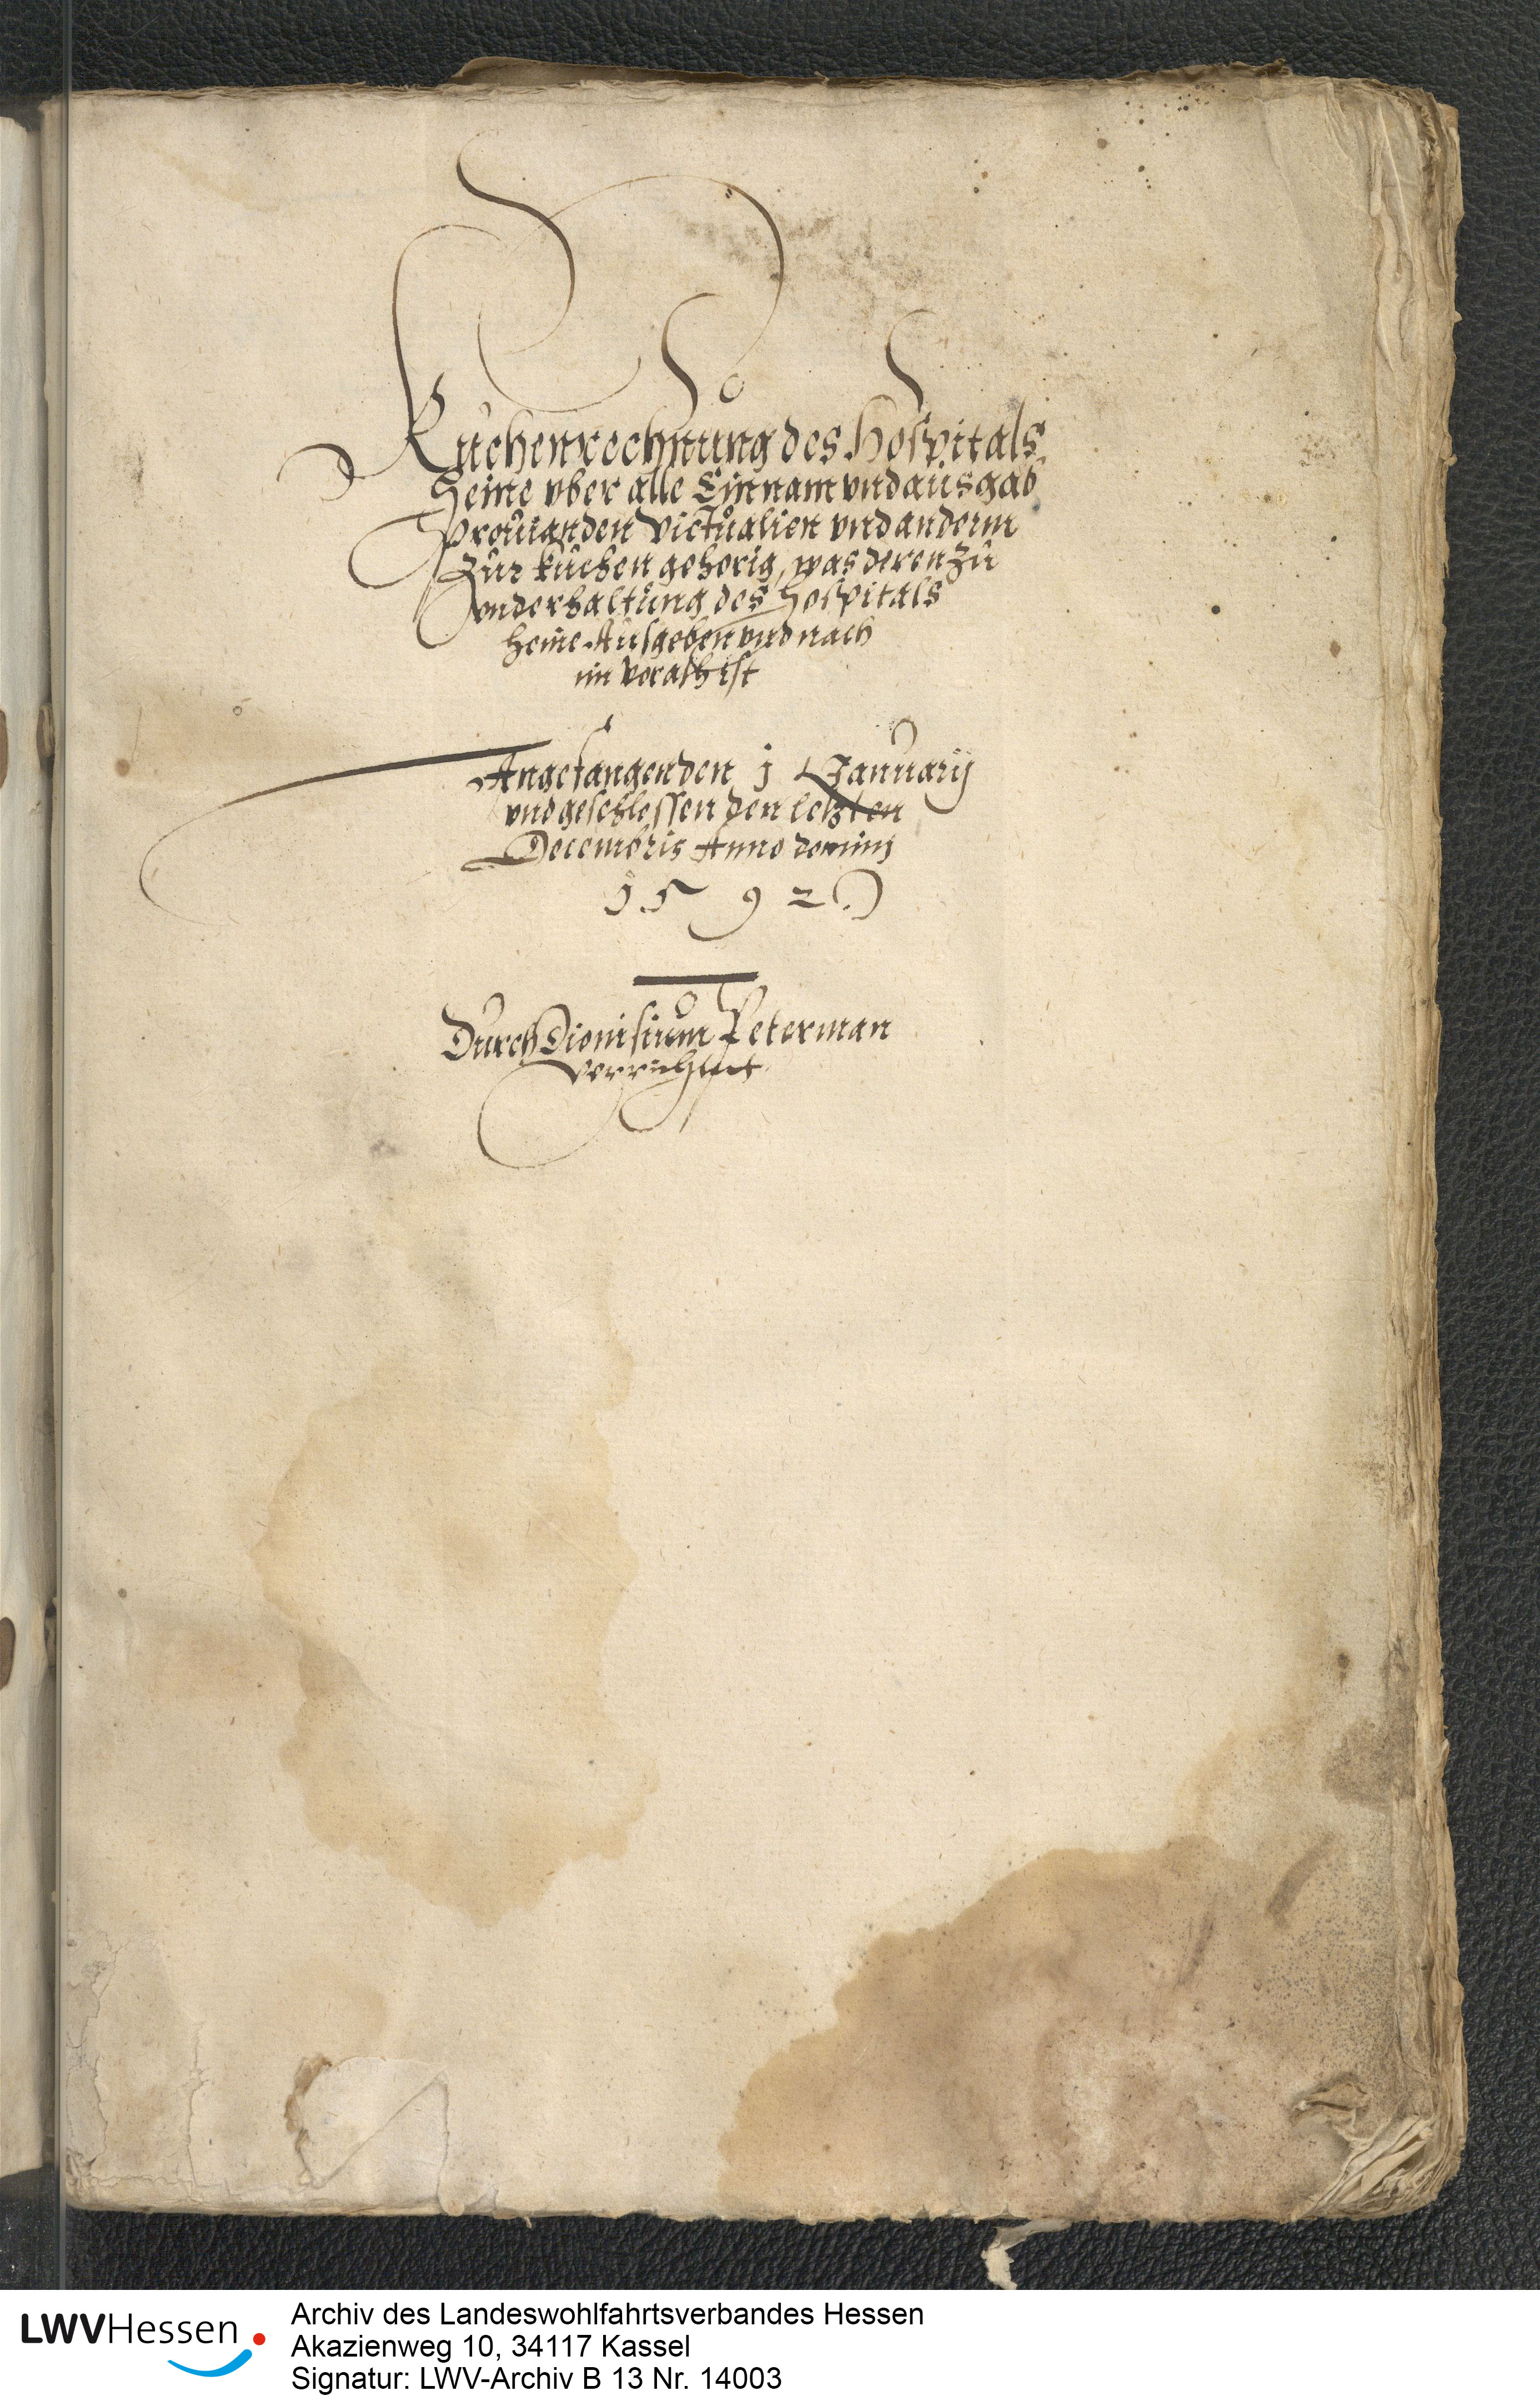 Kuchenrechnung des Hospitals
Heine vber alle Einnam vnd ausgab
Prouianden Victualien vnd anderm
Zur kuchen gehorig, was deren zu
vnderhaltung des Hospitals
heine Ausgeben vnd nach
im vorath ist
Angefangen den 1 January
vnd geschlossen den letzten
Decembris Anno domini
1592
Durch Dionisium Peterman
verrichtet
LWVHessen
Archiv des Landeswohlfahrtsverbandes Hessen
Akazienweg 10, 34117 Kassel
Signatur: LWV-Archiv B 13 Nr. 14003